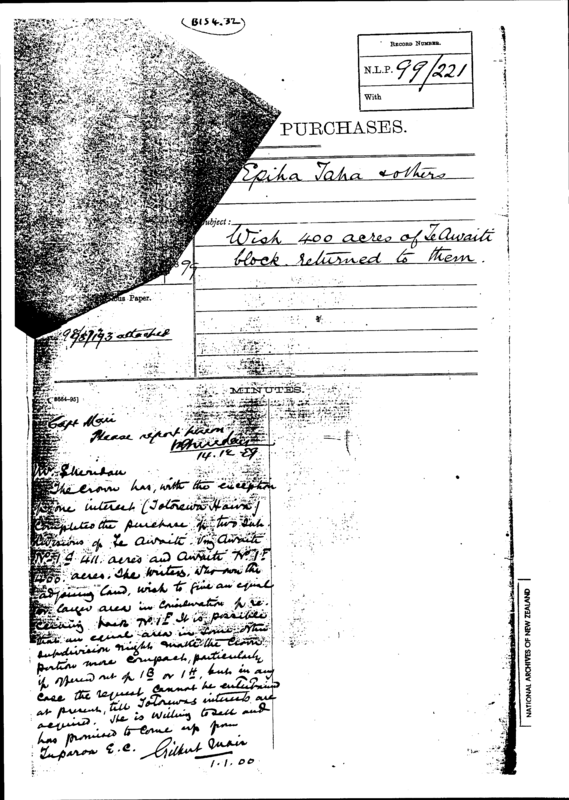 B154.32
RECORD NUMBER.
N.L.P. 99/221
With
PURCHASES.
Epiha Taha & others
Subject:
Wish 400 acres of Te Awaiti
block returned to them.
99
Paper.
attached
MINUTES.
Capt Mair
Please report hereon
14.12.99
Mr Sheridan
The Crown has, with the exception
of one interest (Totorewa Haira)
Completed the purchase of two Sub-
divisions of Te Awaiti. Viz Awaiti
411 acres and Awaiti No 1F
400 acres. The writers, who own the
adjoining land, wish to give an equal
or larger area in Consideration of re-
ceiving back No 1F. It is possible
that an equal area in some other
subdivision might make the Crown
portion more compact, particularly
if offered out of 1B or 1H, but in any
case the request cannot be entertained
at present, till Totorewas interests are
acquired. She is willing to sell and
has promised to come up from
Tuparoa E.C. Gilbert Mair
1.1.00
NATIONAL ARCHIVES OF NEW ZEALAND